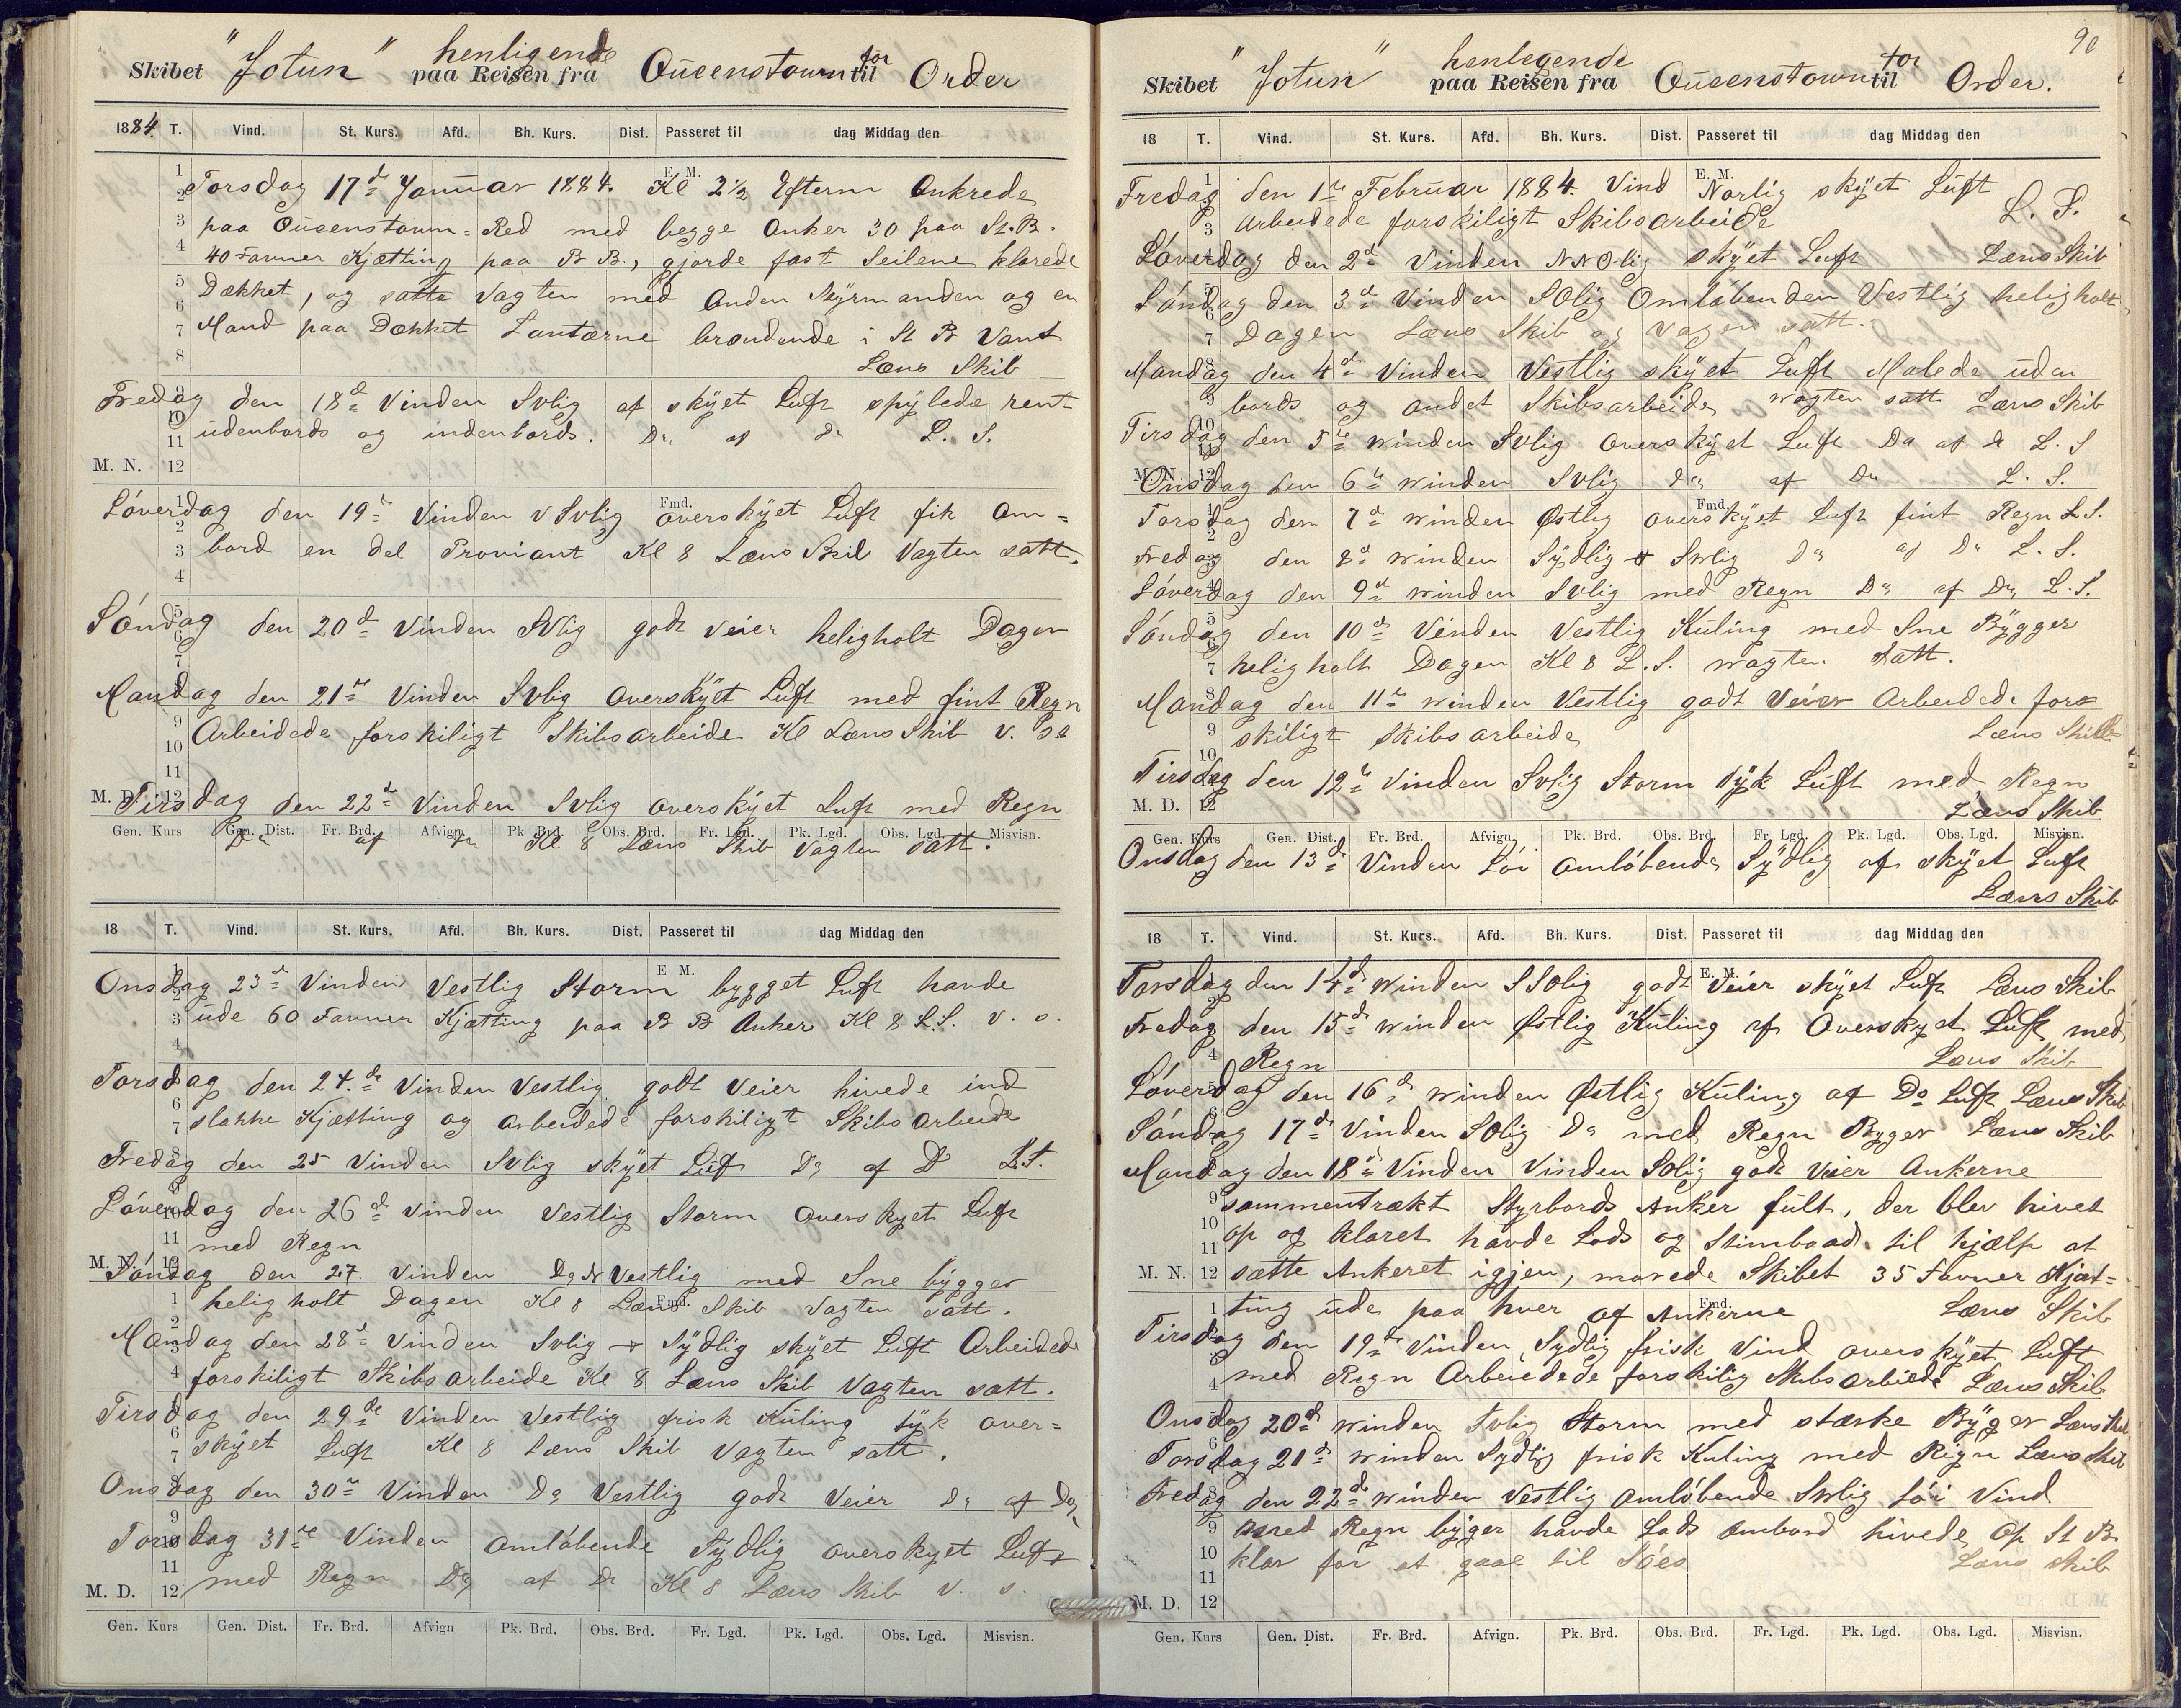 Skibet "Jotun" henligende paa Reisen fra Queenstown for til Order
1884. T. Vind. St. Kurs. Afd. Bh. Kurs. Dist. Passeret til dag Middag den
E. M.
Torsdag 17de Januar 1884. Kl 2½ Efterm Ankrede
paa Queenstown=Red med begge Anker 30 paa St.B.
40 Favner Kjætting paa B B., gjorde fast Seilene klarede
Dækket, og satte Vagten med Anden Styrmanden og en
Mand paa Dækket Lantærne brændende i St B Vant
Læns Skib
Fredag den 18de Vinden SVlig af skÿet Luft spÿlede rent
udenbords og indenbords. Do af do L. S.
M. N. 12
Löverdag den 19de Vinden VSVlig overskÿet Luft fik Om=
Fmd.
bord en del Proviant Kl 8 Læns Skib Vagten satt.
Söndag den 20de Vinden SVlig godt Veier heligholt Dagen
Mandag den 21de Vinden SVlig Overskÿet Luft med fint Regn
Arbeidede forskiligt Skibsarbeide Kl Læns Skib V. st
M. D. 12
Tirsdag den 22de Vinden SVlig overskÿet Luft med Regn
Gen. Kurs Gen. Dist. Fr. Brd. Afvign. Pk. Brd. Obs. Brd. Fr. Lgd. Pk. Lgd. Obs. Lgd. Misvisn.
Do af Do Kl 8 Læns Skib Vagten satt.
18 T. Vind. St. Kurs. Afd. Bh. Kurs. Dist. Passeret til dag Middag den
E M.
Onsdag 23de Vinden Vestlig Storm bygget Luft havde
ude 60 Favner Kjætting paa B B Anker Kl 8 L.S. V. s.
Torsdag den 24.de Vinden Vestlig godt Veier hivede ind
slakke Kjætting og arbeidede forskiligt Skibsarbeide
Fredag den 25 Vinden SVlig skÿet Luft Do af Do L.S.
Löverdag den 26de Vinden Vestlig Storm Overskyet Luft
med Regn
M. N. 12
Söndag den 27. Vinden Do N Vestlig med Sne bÿgger
heligholt Dagen Kl 8 Læns Skib Vagten satt.
Fmd.
Mandag den 28de Vinden SVlig + Sÿdlig skÿet Luft Arbeidede
forskiligt Skibsarbeide Kl 8 Læns Skib Vagten satt.
Tirsdag den 29de Vinden Vestlig frisk Kuling tÿk over=
skÿet Luft Kl 8 Læns Skib Vagten satt.
Onsdag den 30te Vinden Do Vestlig godt Veier Do af Do
Torsdag 31te Vinden omlöbende Sÿdlig overskyet Luft
med Regn Do af Do Kl 8 Læns Skib V. s.
M. D. 12
Gen. Kurs Gen. Dist. Fr. Brd. Afvign Pk. Brd. Obs. Brd. Fr. Lgd. Pk. Lgd. Obs. Lgd. Misvisn.
90
Skibet "Jotun" henlegende paa Reisen fra Queenstown for til Order.
18 T. Vind. St. Kurs. Afd. Bh. Kurs. Dist. Passeret til dag Middag den
E. M.
Fredag den 1te Februar 1884. Vind Norlig skÿet Luft
Arbeidede forskiligt Skibsarbeide L. S.
Löverdag den 2de Vinden NNOlig skÿet Luft Læns Skib
Söndag den 3de Vinden SOlig Omlöbenden Vestlig heligholt
Dagen Læns Skib og Vagen satt.
Mandag den 4de Vinden Vestlig skÿet Luft Malede uden
bords og andet Skibsarbeide wagten satt Læns Skib
Tirsdag den 5te winden SVlig overskÿet Luft Do af do L. S
M. N. 12
Onsdag den 6te winden SVlig do af Do L. S.
Torsdag den 7de winden Østlig overskÿet Luft fint Regn L.S.
Fmd.
Fredag den 8de winden Sÿdlig + Swlig do af Do L. S.
Löverdag den 9de winden SVlig med Regn Do af Do L.S.
Söndag den 10de Vinden Vestlig Kuling med Sne Bÿgger
heligholt Dagen Kl 8 L.S. wagten Satt.
Mandag den 11te winden Vestlig godt Veier Arbeidede for=
skiligt Skibsarbeide Læns Skib
Tirsdag den 12te Vinden SVlig Storm tÿk Luft med Regn
M. D. 12 Læns Skib
Gen. Kurs Gen. Dist. Fr. Brd. Afvign. Pk. Brd. Obs. Brd. Fr. Lgd. Pk. Lgd. Obs. Lgd. Misvisn.
Onsdag den 13de Vinden Löi omlöbende Sÿdlig af skÿet Luft
Læns Skib
18 T. Vind. St. Kurs. Afd. Bh. Kurs. Dist. Passeret til dag Middag den
E. M.
Torsdag den 14de winden SSOlig godt Veier skÿet Luft Læns Skib
Fredag den 15de winden Østlig Kuling af Overskyet Luft med
Regn Læns Skib
Löverdag den 16de winden Østlig Kuling af Do Luft Læns Skib
Söndag 17de Vinden SOlig Do med Regn Byger Læns Skib
Mandag den 18de Vinden Vinden SOlig godt Veier Ankerne
sammentrækt Styrbords Anker fult, der blev hivet
op og klaret havde Lods og Stimbaad til hjælp at
M. N. 12 sætte Ankeret igjen, morede Skibet 35 Favner Kjæt=
ting ude paa hver af Ankerne Læns Skib
Fmd.
Tirsdag den 19de Vinden Sydlig frisk Vind overskÿet Luft
med Regn Arbeidede forskilig Skibsarbeide Læns Skib
Onsdag 20de winden SVlig Storm med stærke Bÿger Læns Skib
Torsdag 21de winden Sydlig frisk Kuling med Regn Læns Skib
Fredag den 22de winden Vestlig omlöbende Swlig Löi Vind
med Regn bÿger havde Lods Ombord hivede Op St B
klar for at gaae til Söes Læns Skib
M. D. 12
Gen. Kurs Gen. Dist. Fr. Brd. Afvign. Pk. Brd. Obs. Brd. Fr. Lgd. Pk. Lgd. Obs. Lgd. Misvisn.